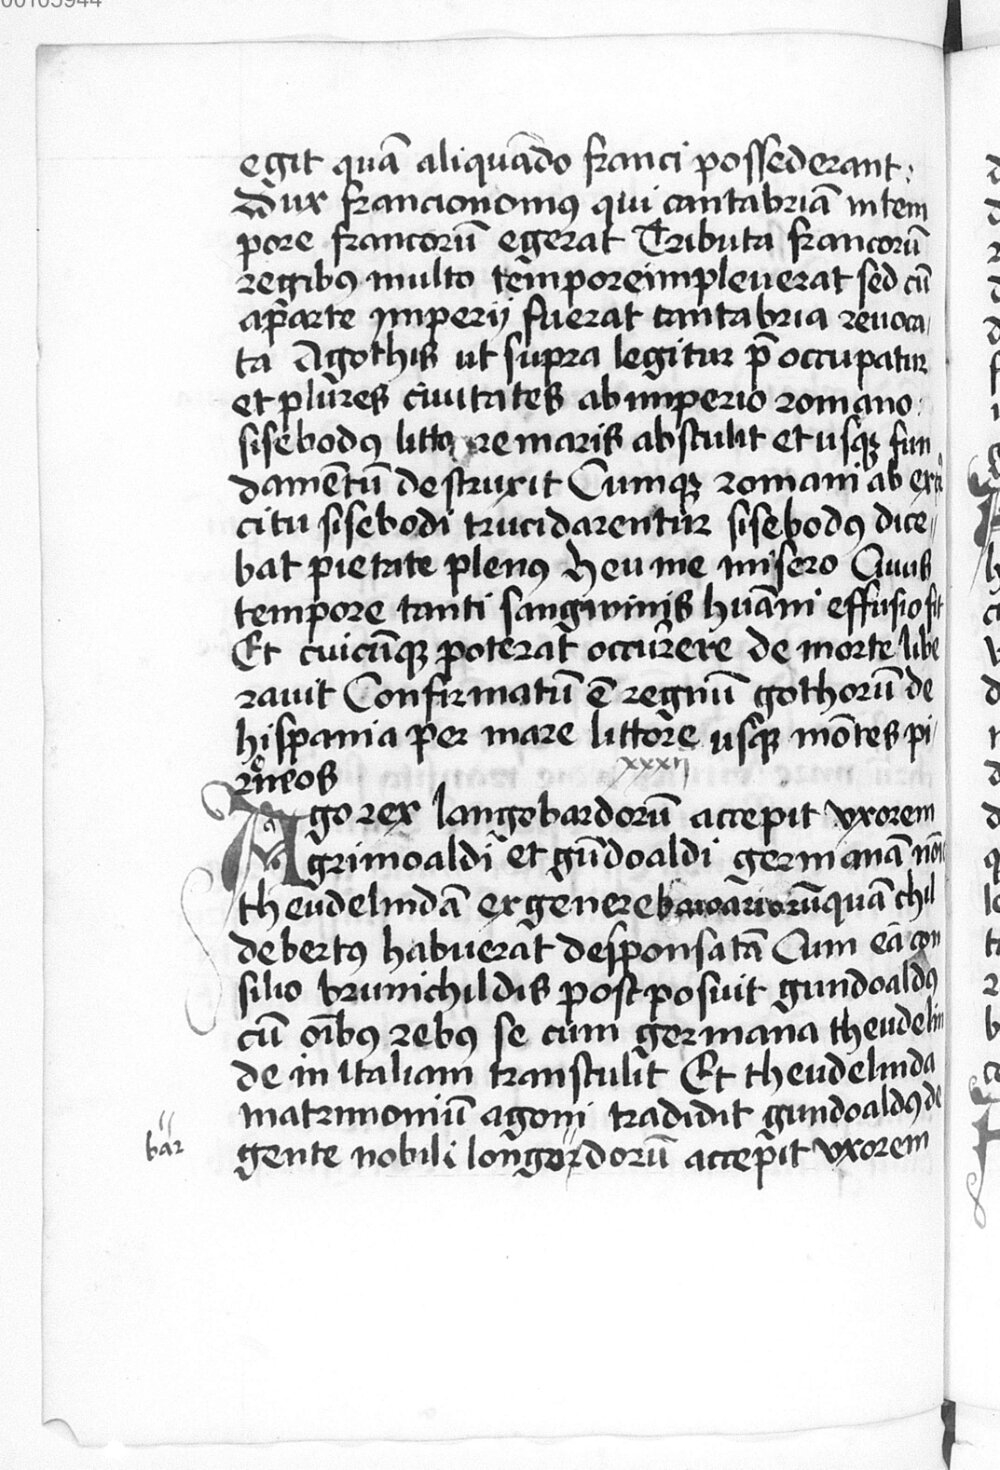 00105944
egit quā aliquādo franci possederant:
Dux francionomꝰ qui cantabriā in tem
pore francorū egerat Tributa francorū
regibꝰ multo tempore impleuerat sed cū
a parte Imperij fuerat cantabria reuoca/
ta Agothis ut supra legitur p̄ occupatur
et plures ciuitates ab imperio romano:
sisebodꝰ littore maris abstulit et usqꝫ fun
damētū destruxit Cumqꝫ romani ab exer
citu sisebodi trucidarentur sisebodꝰ dice/
bat pietate plenꝰ Heu me misero Cuius
tempore tanti sangwinis huāni effusio fit
Et cuicūqꝫ poterat occurrere de morte libe
rauit Confirmatū ē regnū gothorū de
hispania per mare littore usqꝫ mōtes pi/
rineos
xxxij
Ago rex langobardorū accepit vxorem
grimoaldi et gūdoaldi germanā noīe
theudelindā ex genere baioariorū quā chil
debertꝰ habuerat desponsatā Cum eā con
silio brunichildis postposuit gundoaldꝰ
cū oībꝰ rebꝰ se cum germana theudelin
de in italiam transtulit Et theudelinda
matrimoniū agoni tradidit gundoaldꝰ de
bar
gente nobili longordorū accepit vxorem